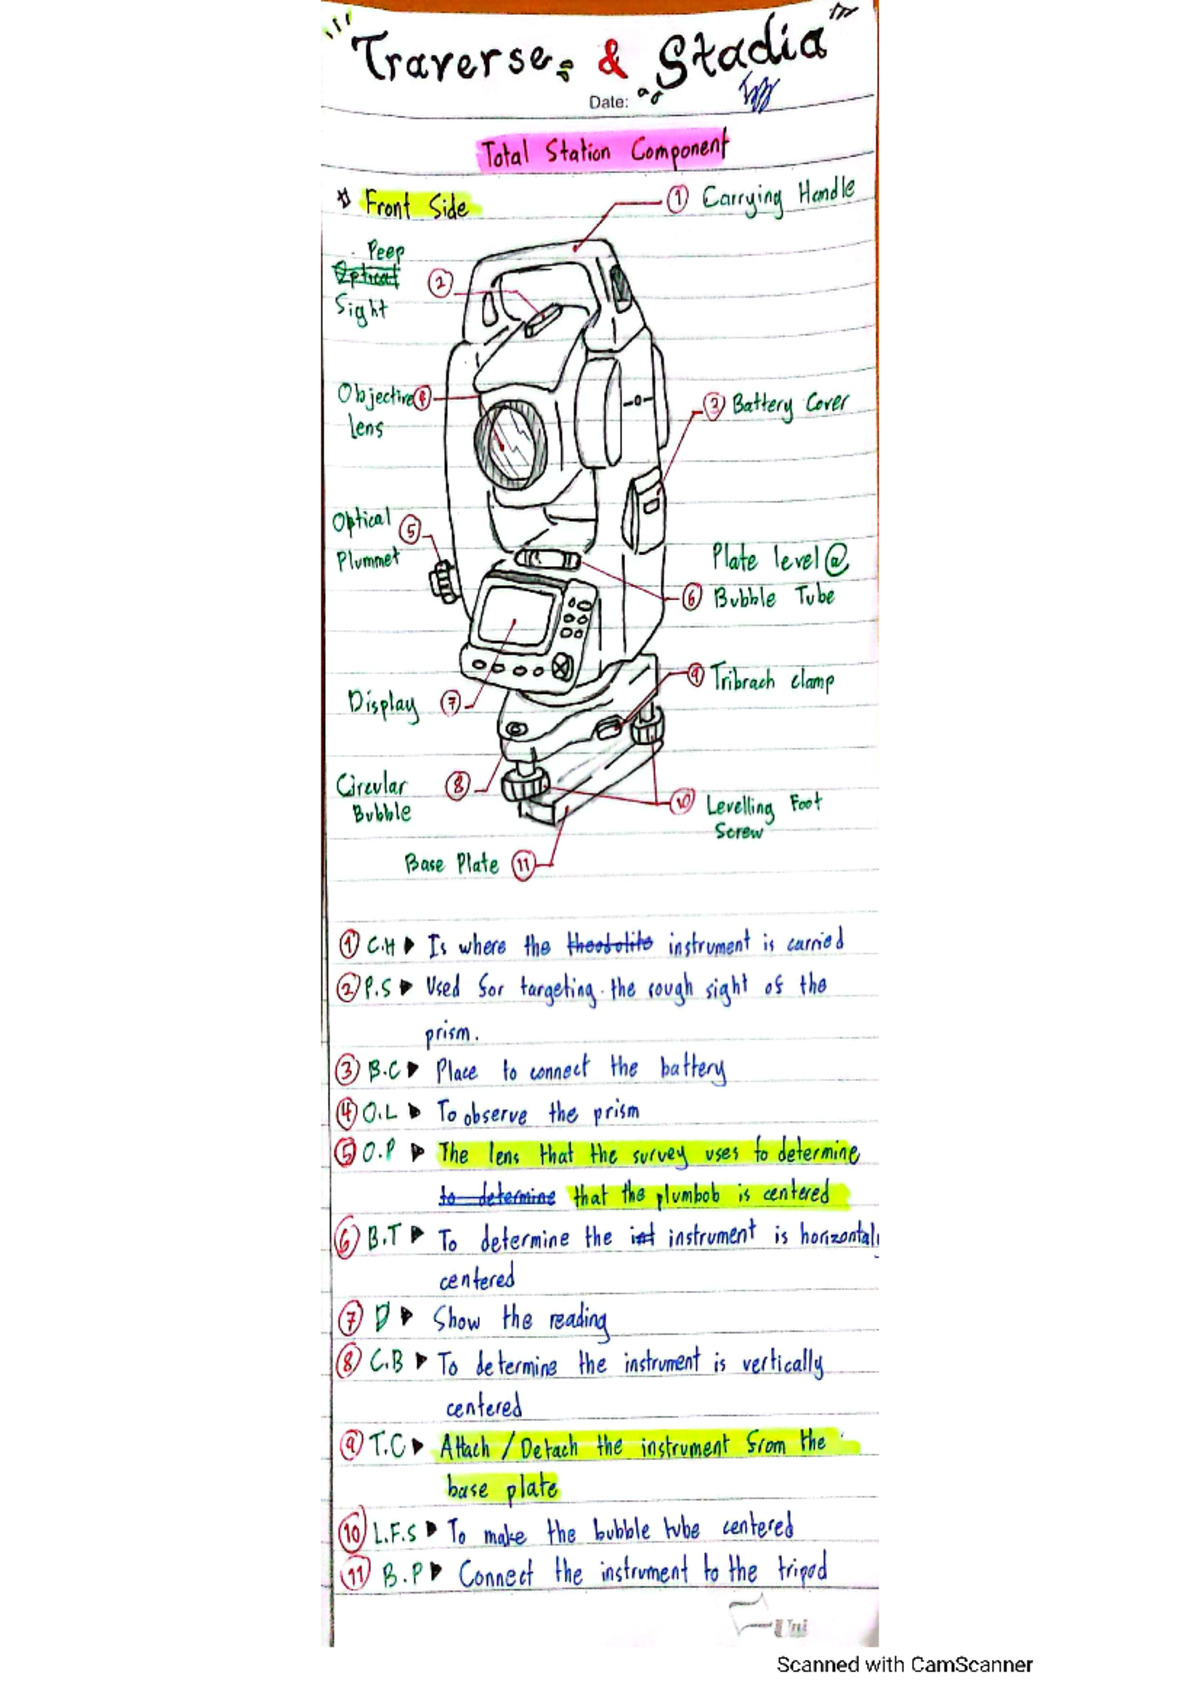 Traverse & Stadia
Date:
Total Station Component
Front Side
① Carrying Handle
Peep
Optical
Sight
②
Objective ④
lens
③ Battery Cover
Optical ⑤
Plummet
Plate level @
⑥ Bubble Tube
⑨ Tribrach clamp
Display ⑦
Circular ⑧
Bubble
⑩ Levelling Foot
Screw
Base Plate ⑪
① C.H ▶ Is where the theodolite instrument is carried
② P.S ▶ Used for targeting the rough sight of the
prism.
③ B.C ▶ Place to connect the battery
④ O.L ▶ To observe the prism
⑤ O.P ▶ The lens that the survey uses to determine
to determine that the plumbob is centered
⑥ B.T ▶ To determine the int instrument is horizontal
centered
⑦ D ▶ Show the reading
⑧ C.B ▶ To determine the instrument is vertically
centered
⑨ T.C ▶ Attach / Detach the instrument from the
base plate
⑩ L.F.S ▶ To make the bubble tube centered
⑪ B.P ▶ Connect the instrument to the tripod
Uni
Scanned with CamScanner